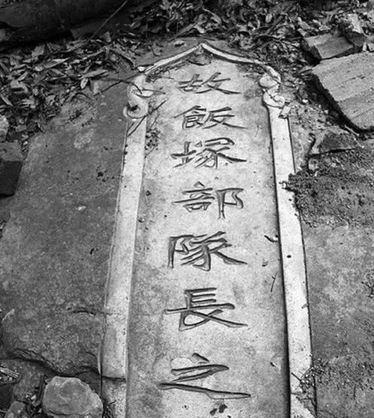 故飯塚部隊長之